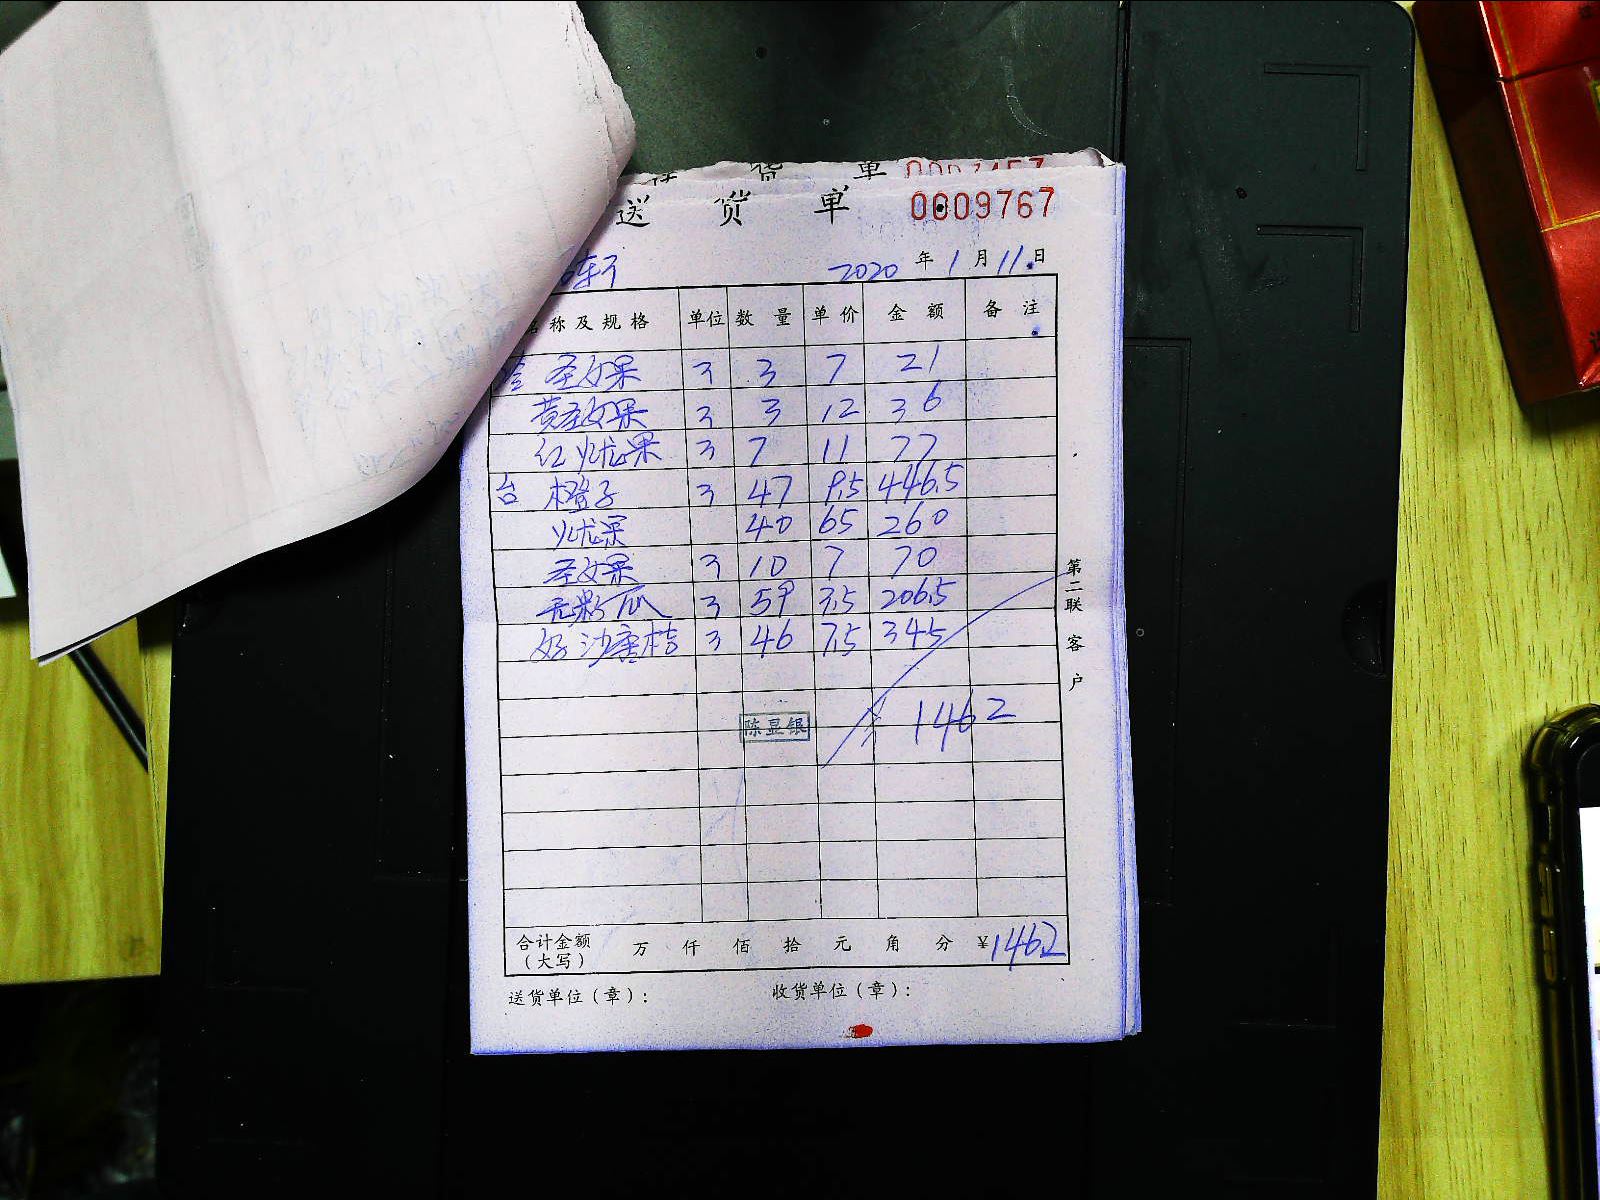 货 单
送 货 单 0009767
2020 年 1 月 11 日
名称及规格 单位 数量 单价 金额 备注
圣女果 3 3 7 21
黄圣女果 3 3 12 36
红火龙果 3 7 11 77
台 橙子 3 47 9.5 446.5
火龙果 40 65 260
圣女果 3 10 7 70
无籽瓜 3 59 3.5 206.5
好沙唐桔 3 46 7.5 345
1462
陈显银
合计金额 万 仟 佰 拾 元 角 分 ¥1462
(大写)
送货单位(章): 收货单位(章):
第二联 客户